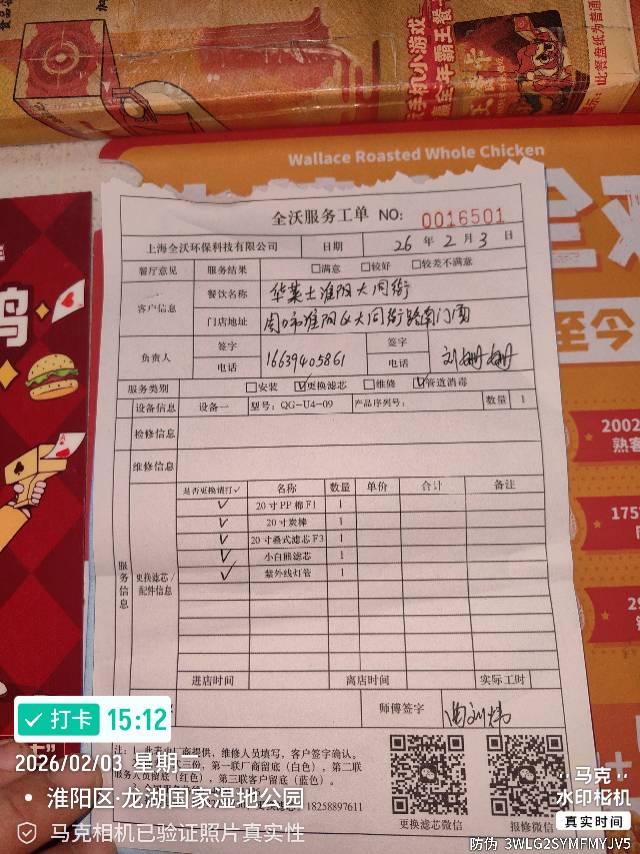 手机小游戏
赢全年霸王餐
此餐盘纸为普通
Wallace Roasted Whole Chicken
至今
2002
熟客
175
全沃服务工单 NO: 0016501
上海全沃环保科技有限公司 日期 26 年 2 月 3 日
餐厅意见 服务结果 □满意 □较好 □较差不满意
客户信息 餐饮名称 华莱士淮阳大同街
门店地址 周口市淮阳区大同街路南门面
负责人 签字 电话 16639405861 签字 电话 刘姗姗
服务类别 □安装 ☑更换滤芯 □维修 ☑管道消毒
设备信息 设备一 型号: QG-U4-09 产品序列号: 数量 1
检修信息
维修信息
服务信息 更换滤芯/配件信息
是否更换请打✓ 名称 数量 单价 合计 备注
✓ 20寸PP棉F1 1
✓ 20寸炭棒 1
✓ 20寸叠式滤芯F3 1
✓ 小白熊滤芯 1
✓ 紫外线灯管 1
进店时间 离店时间 实际工时
师傅签字
注: 1、此表由厂商提供, 维修人员填写, 客户签字确认。
三份, 第一联厂商留底(白色), 第二联
服务人员留底(红色), 第三联客户留底(蓝色)。
18258897611
更换滤芯微信 报修微信
打卡 15:12
2026/02/03 星期二
淮阳区·龙湖国家湿地公园
马克相机已验证照片真实性
马克
水印相机
真实时间
防伪 3WLG2SYMFMYJV5